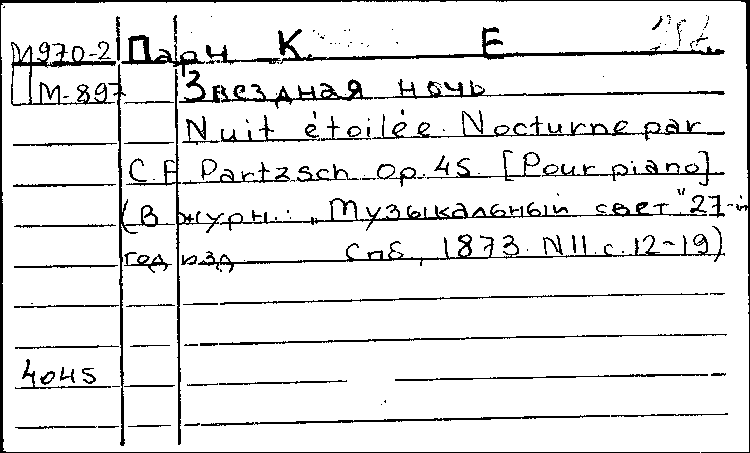 М970-2 Парч К. Е
М-897 Звездная ночь
Nuit étoilée. Nocturne par
C. F. Partzsch Op. 45. [Pour piano]
(В журн.: „Музыкальный свет" 27-й
год изд Спб, 1873. N11. с. 12-19)
4045